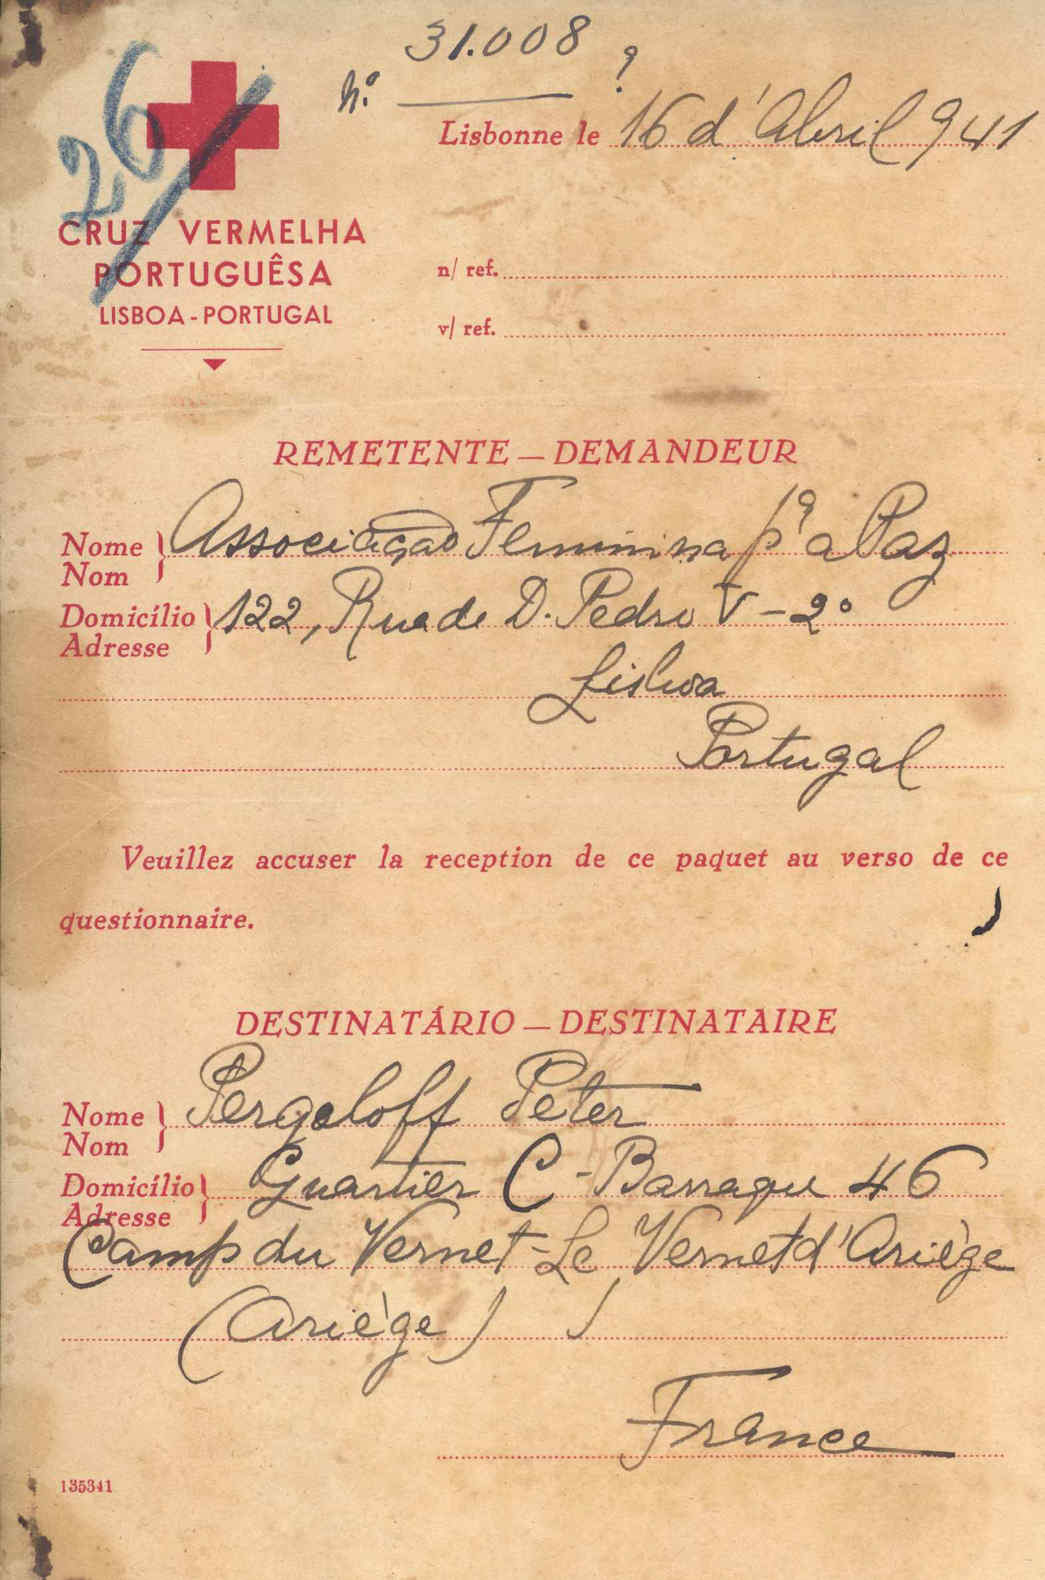 31.008
Nº
26
Lisbonne le 16 d'Abril 941
CRUZ VERMELHA
PORTUGUÊSA
LISBOA - PORTUGAL
n/ ref.
v/ ref.
REMETENTE — DEMANDEUR
Nome Associação Feminina pª a Paz
Nom
Domicílio 122, Rua de D. Pedro V - 2º
Adresse
Lisboa
Portugal
Veuillez accuser la reception de ce paquet au verso de ce
questionnaire.
DESTINATÁRIO — DESTINATAIRE
Nome Pergoloff Peter
Nom
Domicílio Quartier C - Barraque 46
Adresse
Camp du Vernet - Le Vernet d'Ariège
(Ariège)
France
135341